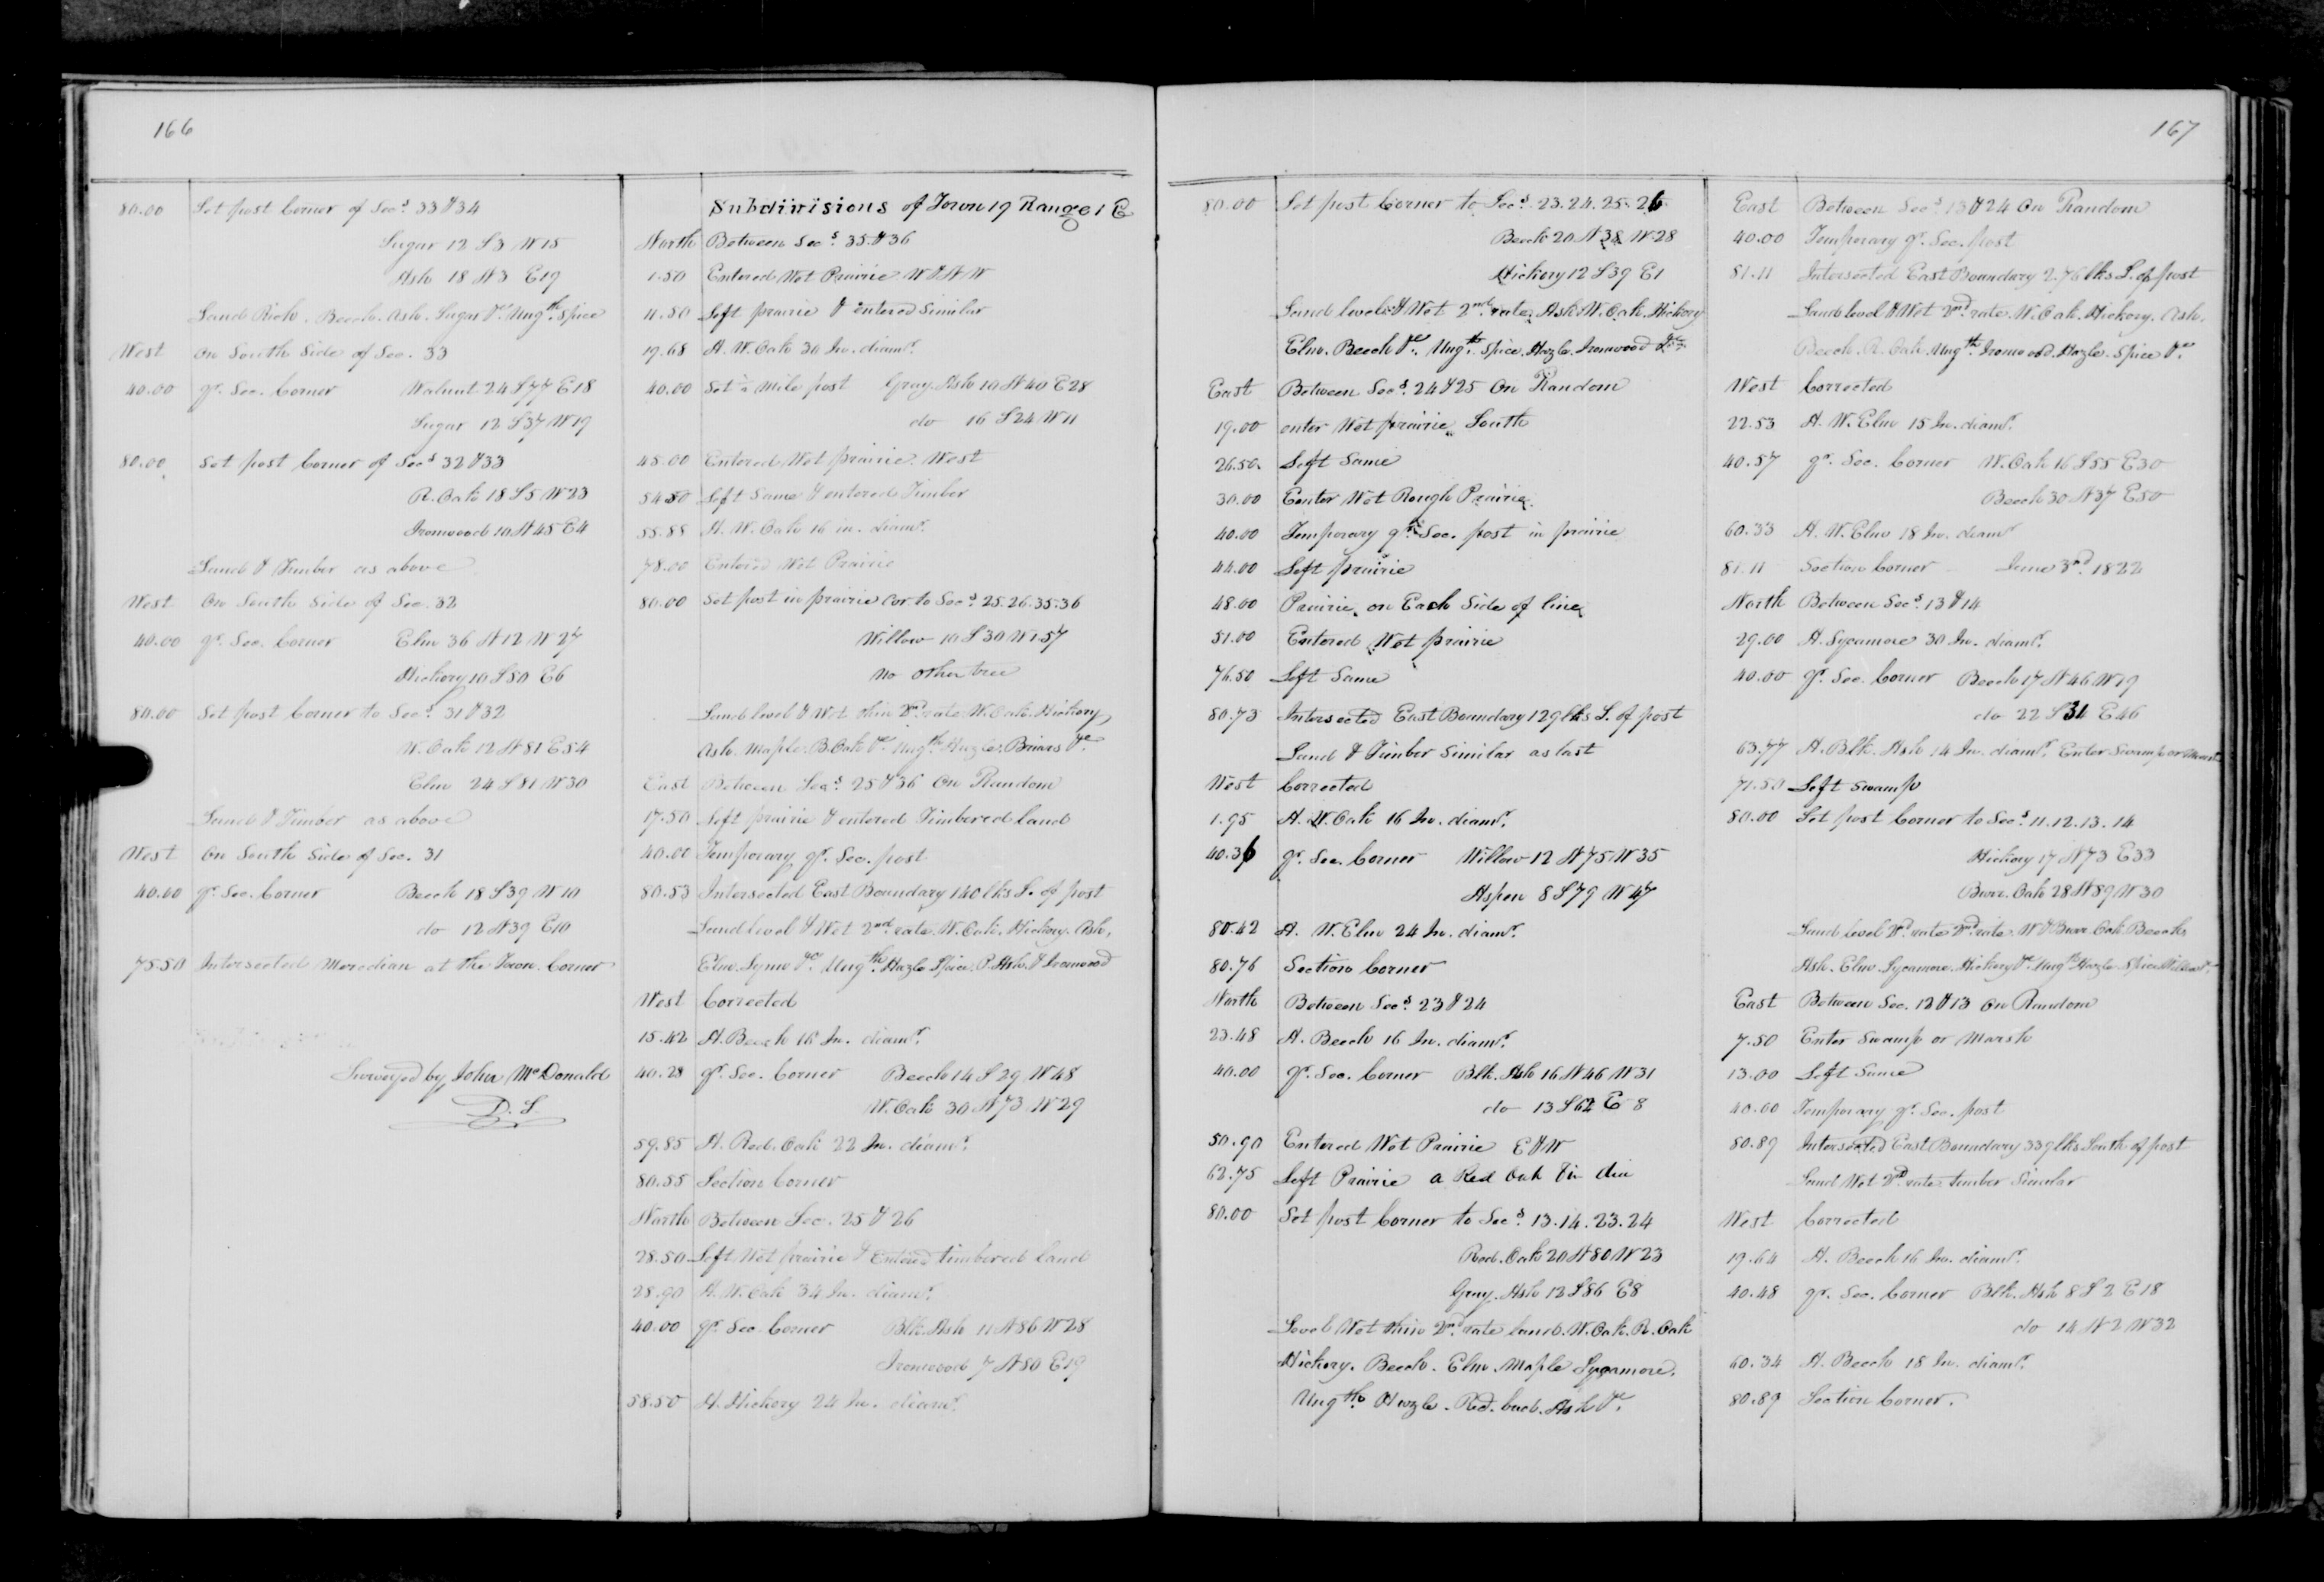 166
80.00 Set post Corner of Secs. 33 & 34
Sugar 12 S3 W15
Ash 18 N3 E19
Land Rich. Beech. Ash. Sugar &c. Ungth. Spice
West On South Side of Sec. 33
40.00 qr. Sec. Corner Walnut 24 S77 E18
Sugar 12 S37 W19
80.00 Set post Corner of Secs 32 & 33
R. Oak 18 S5 W23
Ironwood 10 N45 E4
Land & Timber as above
West On South Side of Sec. 32
40.00 qr. Sec. Corner Elm 36 N12 W27
Hickory 10 S50 E6
80.00 Set post Corner to Secs. 31 & 32
W. Oak 12 N81 E54
Elm 24 S81 W30
Land & Timber as above
West On South Side of Sec. 31
40.00 qr. Sec. Corner Beech 18 S39 W10
do 12 N39 E10
75.50 Intersected Meredian at the Town. Corner
Surveyed by John McDonald
D. S.
Subdivisions of Town 19 Range 1 E
North Between Secs. 35 & 36
1.50 Entered Wet Prairie W & N W
11.50 Left prairie & entered Similar
19.68 A. W. Oak 30 In. diamr.
40.00 Set ½ Mile post Gray. Ash 10 N40 E28
do 16 S24 W11
45.00 Entered Wet prairie West
54.50 Left Same & entered Timber
55.88 A. W. Oak 16 in. diamr.
78.00 Entered Wet Prairie
80.00 Set post in prairie Cor. to Secs. 25.26.35.36
Willow 10 S30 W1.57
no other tree
Land level & Wet thin 2nd. rate W. Oak. Hickory
Ash. Maple. B. Oak &c Ungth. Hazle. Briars &c
East Between Secs. 25 & 36 On Random
17.50 Left prairie & entered Timbered land
40.00 Temporary qr. Sec. post
80.53 Intersected East Boundary 140 lks S. of post
Land level & Wet 2nd. rate. W. Oak. Hickory. Ash,
Elm. Lynn &c Ungth. Hazle Spice. P. Ash. & Ironwood
West Corrected
15.42 A. Beech 16 In. diamr.
40.28 qr. Sec. Corner Beech 14 S29 W48
W. Oak 30 N73 W29
59.85 A. Red. Oak 22 In. diamr.
80.55 Section Corner
North Between Sec. 25 & 26
28.50 Left Wet prairie & Entered timbered land
28.90 A. W. Oak 34 In. diamr.
40.00 qr. Sec. Corner Blk. Ash 11 N86 W28
Ironwood 7 N50 E19
58.50 A. Hickory 24 In. diamr.
167
80.00 Set post Corner to Secs. 23.24.25.26
Beech 20 N38 W28
Hickory 12 S39 E1
Land level & Wet 2nd. rate. Ash. W. Oak. Hickory
Elm. Beech &c. Ungth. Spice. Hazle. Ironwood &c.
East Between Secs. 24 & 25 On Random
19.00 enter Wet prairie South
26.50. Left Same
30.00 Enter Wet Rough Prairie
40.00 Temporary qr. Sec. post in prairie
44.00 Left prairie
48.00 Prairie on Each Side of line
51.00 Entered Wet prairie
76.50 Left Same
80.73 Intersected East Boundary 129 lks S. of post
Land & Timber Similar as last
West Corrected
1.95 A. W. Oak 16 In. diamr.
40.36 qr. Sec. Corner Willow 12 N75 W35
Aspen 8 S79 W47
80.42 A. W. Elm 24 In. diamr.
80.76 Section Corner
North Between Secs. 23 & 24
23.48 A. Beech 16 In. diamr.
40.00 qr. Sec. Corner Blk. Ash 16 N46 W31
do 13 S62 E 8
50.90 Entered Wet Prairie E & W
62.75 Left Prairie a Red Oak in dia
80.00 Set post Corner to Secs. 13.14.23.24
Red. Oak 20 N80 W23
Gray. Ash 12 S86 E8
Level Wet thin 2nd. rate land. W. Oak. R. Oak
Hickory. Beech. Elm. Maple Sycamore.
Ungth. Hazle. Red. bud. Ash &c.
East Between Secs. 13 & 24 On Random
40.00 Temporary qr. Sec. post
81.11 Intersected East Boundary 2.76 lks S. of post
Land level & Wet 2nd. rate. W. Oak. Hickory. Ash.
Beech. R. Oak. Ungth. Ironwood. Hazle. Spice &c
West Corrected
22.53 A. W. Elm 15 In. diamr.
40.57 qr. Sec. Corner W. Oak 16 S55 E30
Beech 30 N37 E50
60.33 A. W. Elm 18 In. diamr
81.11 Section Corner June 3rd. 1822
North Between Secs. 13 & 14
29.00 A. Sycamore 30 In. diamr.
40.00 qr. Sec. Corner Beech 17 N46 W19
do 22 S31 E46
63.77 A. Blk. Ash 14 In. diamr. Enter Swamp or Marsh
71.50 Left Swamp
80.00 Set post Corner to Secs. 11.12.13.14
Hickory 17 N73 E33
Burr. Oak 28 N89 W30
Land level 2nd. rate 2nd. rate W & Burr. Oak Beech
Ash. Elm. Sycamore. Hickory &c. Ungth. Hazle. Spice
East Between Sec. 12 & 13 On Random
7.50 Enter Swamp or Marsh
13.00 Left Same
40.00 Temporary qr. Sec. post
80.89 Intersected East Boundary 339 lks South of post
Land Wet 2nd. rate timber Similar
West Corrected
19.64 A. Beech 16 In. diamr.
40.48 qr. Sec. Corner Blk. Ash 8 S2 E18
do 14 N2 W32
60.34 A. Beech 18 In. diamr.
80.89 Section Corner.